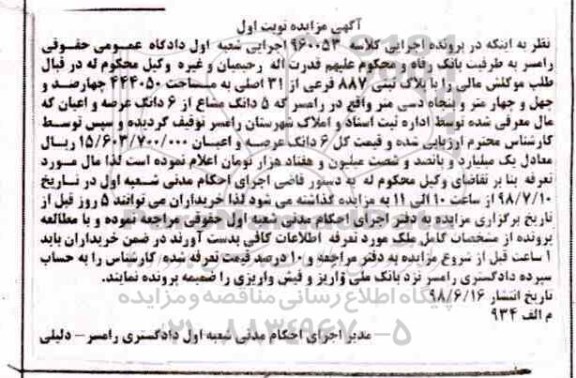 آگهی مزایده نوبت اول
نظر به اینکه در پرونده اجرایی کلاسه ۹۶۰۰۵۳ اجرایی شعبه اول دادگاه عمومی حقوقی
رامسر به طرفیت بانک رفاه و محکوم علیهم قدرت اله رحیمیان و غیره وکیل محکوم له در قبال
طلب موکلش مالی را با پلاک ثبتی ۸۸۷ فرعی از ۳۱ اصلی به مساحت ۴۴۴۰۵۰ چهارصد و
چهل و چهار متر و پنجاه دسی متر واقع در رامسر که ۵ دانگ مشاع از ۶ دانگ عرصه و اعیان که
مال معرفی شده توسط اداره ثبت اسناد و املاک شهرستان رامسر توقیف گردیده و سپس توسط
کارشناس محترم ارزیابی شده و قیمت کل ۶ دانگ عرصه و اعیان ۱۵/۶۰۳/۷۰۰/۰۰۰ ریال
معادل یک میلیارد و پانصد و شصت میلیون و هفتاد هزار تومان اعلام نموده است لذا مال مورد
تعرفه بنا بر تقاضای وکیل محکوم له به دستور قاضی اجرای احکام مدنی شعبه اول در تاریخ
۹۸/۷/۱۰ از ساعت ۱۰ الی ۱۱ به مزایده گذاشته می شود لذا خریداران می توانند ۵ روز قبل از
تاریخ برگزاری مزایده به دفتر اجرای احکام مدنی شعبه اول حقوقی مراجعه نموده و با مطالعه
پرونده از مشخصات کامل ملک مورد تعرفه اطلاعات کافی بدست آورند در ضمن خریداران باید
۱ ساعت قبل از شروع مزایده به دفتر مراجعه و ۱۰ درصد قیمت تعرفه شده کارشناس را به حساب
سپرده دادگستری رامسر نزد بانک ملی واریز و فیش واریزی را ضمیمه پرونده نمایند.
تاریخ انتشار ۹۸/۶/۱۶
پایگاه اطلاع رسانی مناقصه و مزایده
م الف ۹۳۴
۰۲۱-۸۸۳۴۹۶۷۰-۵
مدیر اجرای احکام مدنی شعبه اول دادگستری رامسر – دلیلی